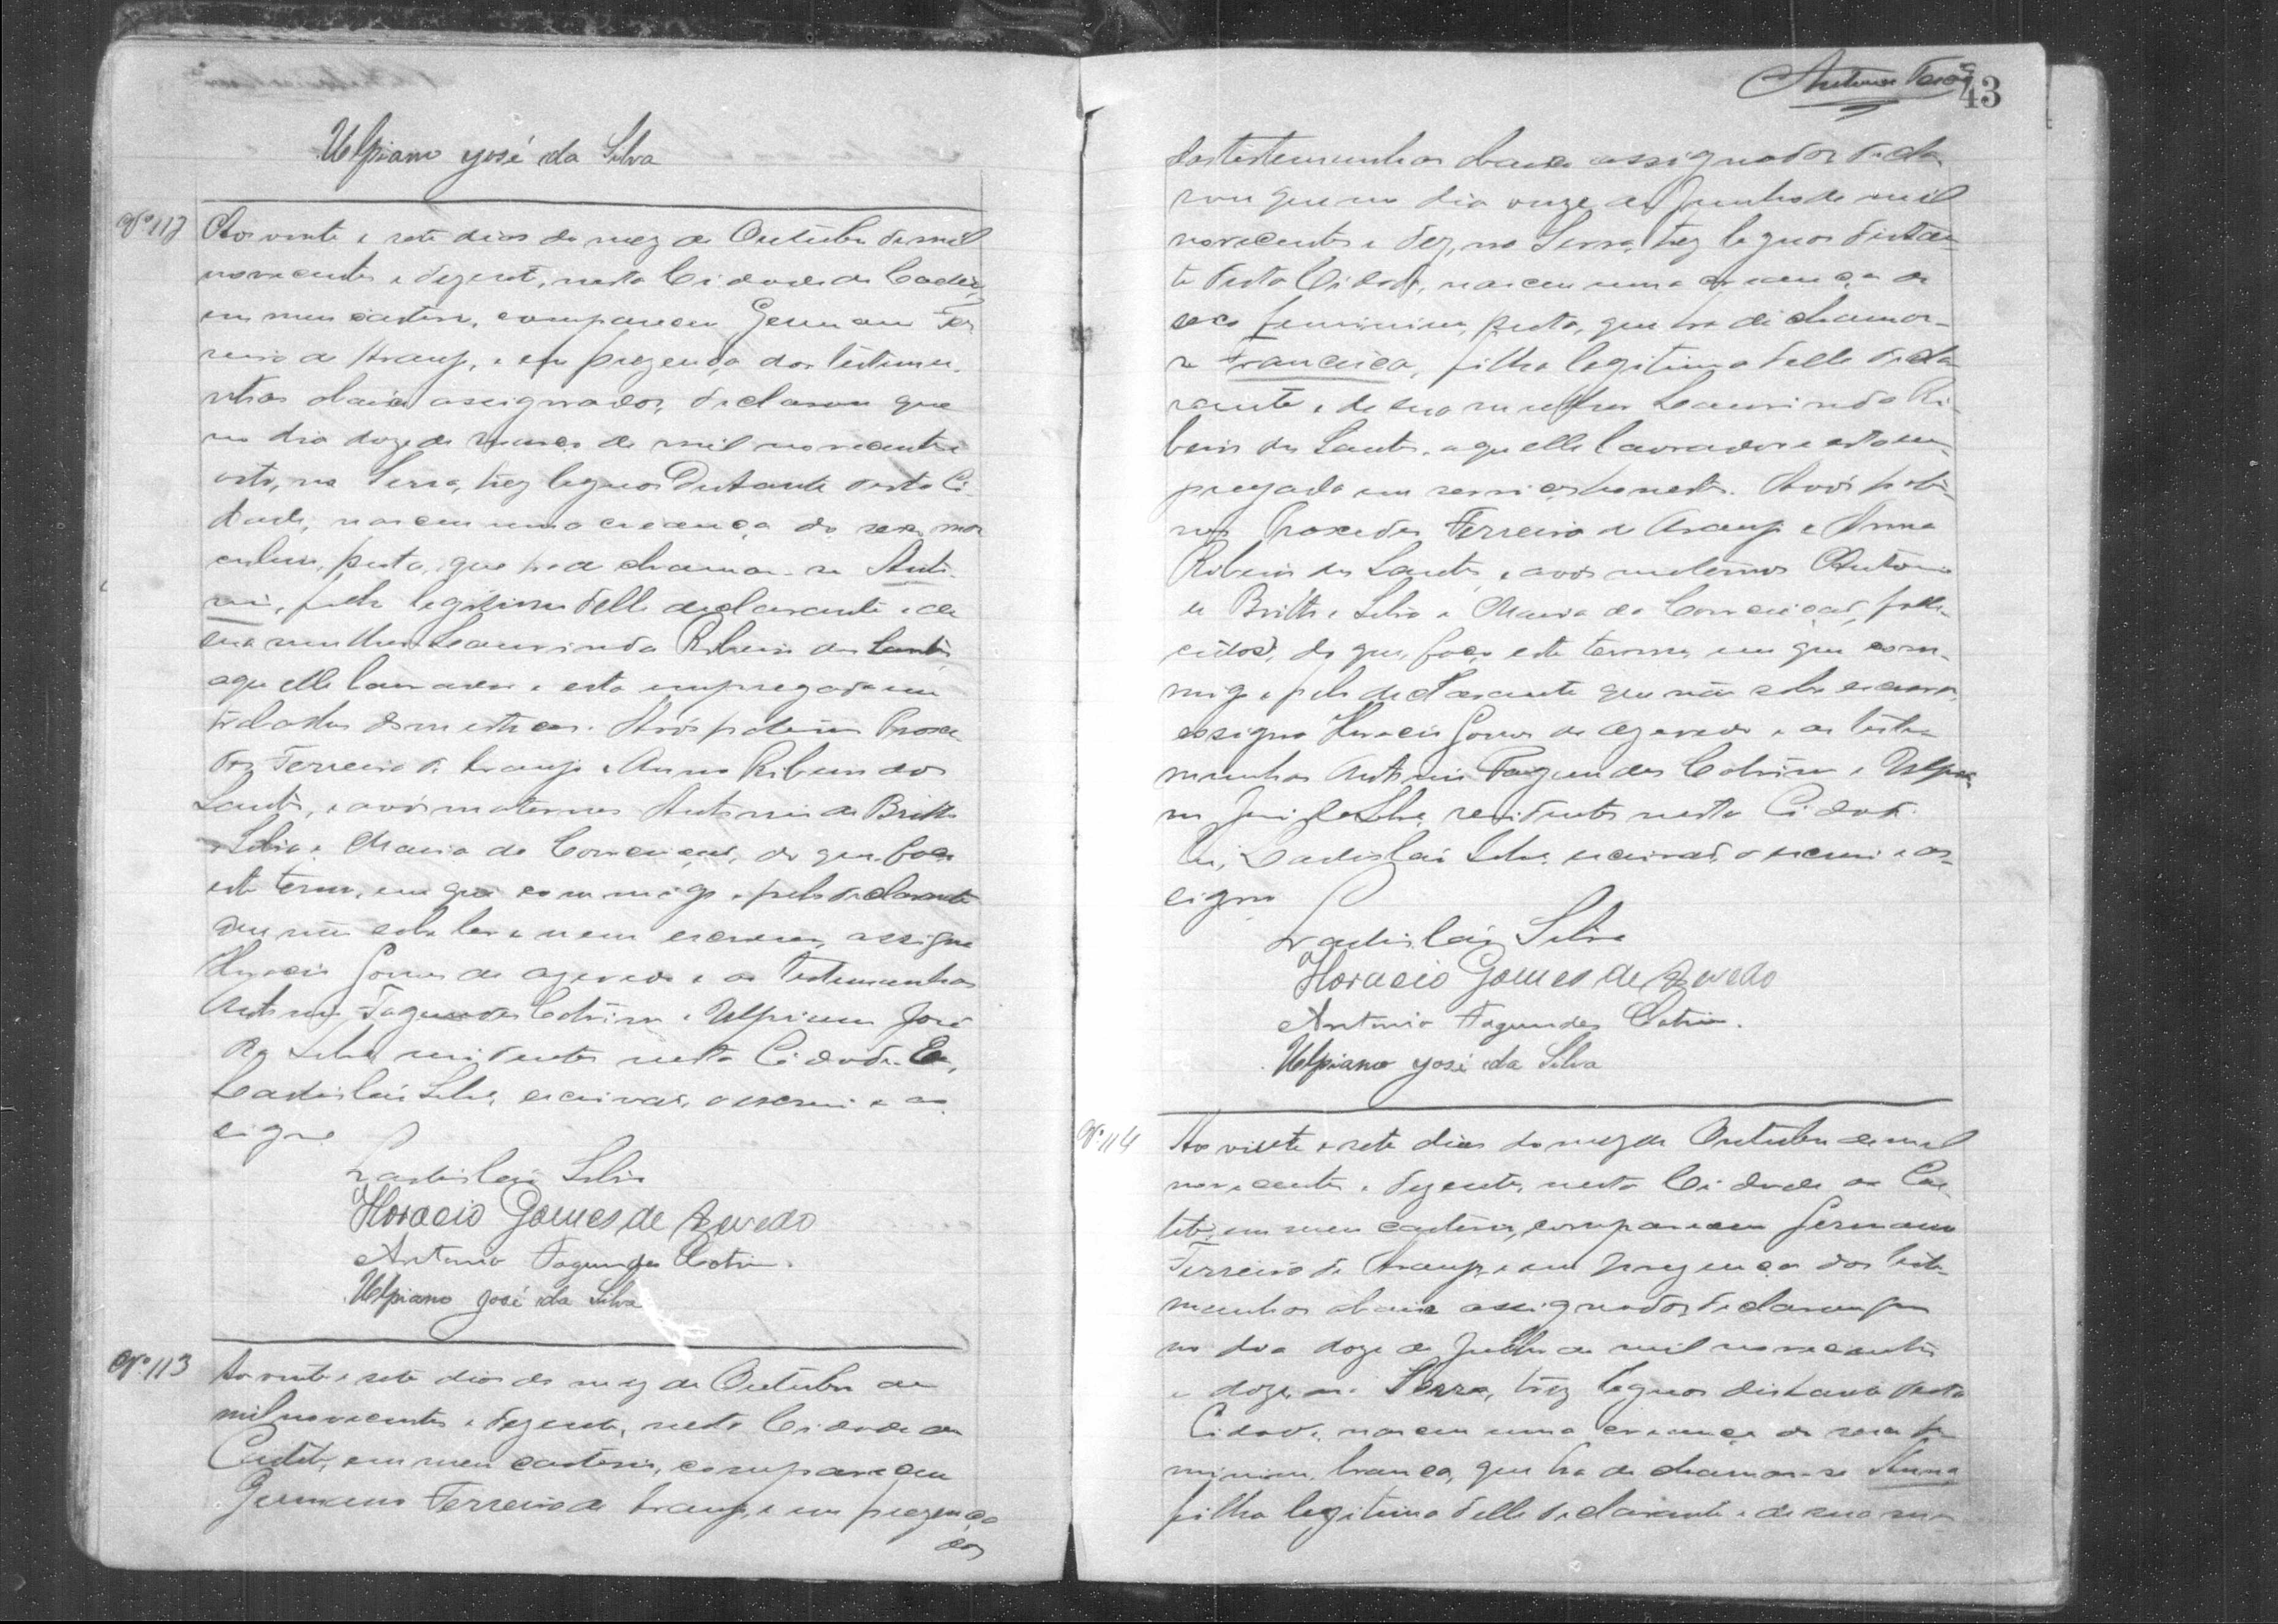 Ulpiano José da Silva
Nº 112
Aos vinte e sete dias do mez de Outubro de mil
novecentos e dezesete, nesta Cidade de Caetité,
em meu cartorio, compareceu Germano Fer
reira de Araujo, e em prezença das testemu-
nhas abaixo assignados, declarou que
no dia doze de março de mil novecentos e
oito, na Serra, trez leguas distante desta Ci-
dade, nasceu uma creança do sexo mas
culino, preta, que ha de chamar-se Anto-
nio, filho legitimo delle declarante e de
sua mulher Laurinda Ribeiro dos Santos,
aquelle lavrador e esta empregada em
trabalhos domesticos. Avós paternos Proce
des Ferreira de Araujo e Anna Ribeiro dos
Santos, e avós maternos Antonio de Britto
e Silva e Maria da Conceição, do que faço
este termo, em que commigo e pelo declarante
que não sabe ler e nem escrever, assigna
Horacio Gomes de Azevedo e as testemunhas
Antonio Fagundes Cotrim e Ulpiano José
da Silva, residentes nesta Cidade. Eu,
Ladislau Silva, escrivão, o escrevi e as-
signo
Ladislau Silva
Horacio Gomes de Azevedo
Antonio Fagundes Cotrim.
Ulpiano José da Silva
Nº 113
Aos vinte e sete dias do mez de Outubro de
mil novecentos e dezesete, nesta Cidade de
Caetité, em meu cartorio, compareceu
Germano Ferreira de Araujo, e em prezença
das
Antonio
43
das testemunhas abaixo assignados decla-
rou que no dia onze de Junho de mil
novecentos e dez, na Serra, trez leguas distan-
te desta Cidade, nasceu uma creança de
sexo feminino, preta, que ha de chamar-
se Francisca, filha legitima delle decla
rante e de sua mulher Laurinda Ri-
beiro dos Santos, aquelle lavrador e esta em-
pregada em serviços domesticos. Avós pater-
nos Procedes Ferreira de Araujo e Anna
Ribeiro dos Santos, e avós maternos Antonio
de Britto e Silva e Maria da Conceição, falle-
cidos, do que, faço este termo, em que com-
migo e pelo declarante que não sabe escrever,
assigna Horacio Gomes de Azevedo e as teste-
munhas Antonio Fagundes Cotrim e Ulpia-
no José da Silva, residentes nesta Cidade.
Eu, Ladislau Silva, escrivão, o escrevi e as-
signo
Ladislau Silva
Horacio Gomes de Azevedo
Antonio Fagundes Cotrim.
Ulpiano José da Silva
Nº 114
Aos vinte e sete dias do mez de Outubro de mil
novecentos e dezesete, nesta Cidade de Cae-
tité, em meu cartorio, compareceu Germano
Ferreira de Araujo e em prezença das teste-
munhas abaixo assignados declarou que
no dia doze de Julho de mil novecentos
e doze, na Serra, trez leguas distante desta
Cidade, nasceu uma creança do sexo fe
minino, branca, que ha de chamar-se Anna
filha legitima delle declarante e de sua mu-